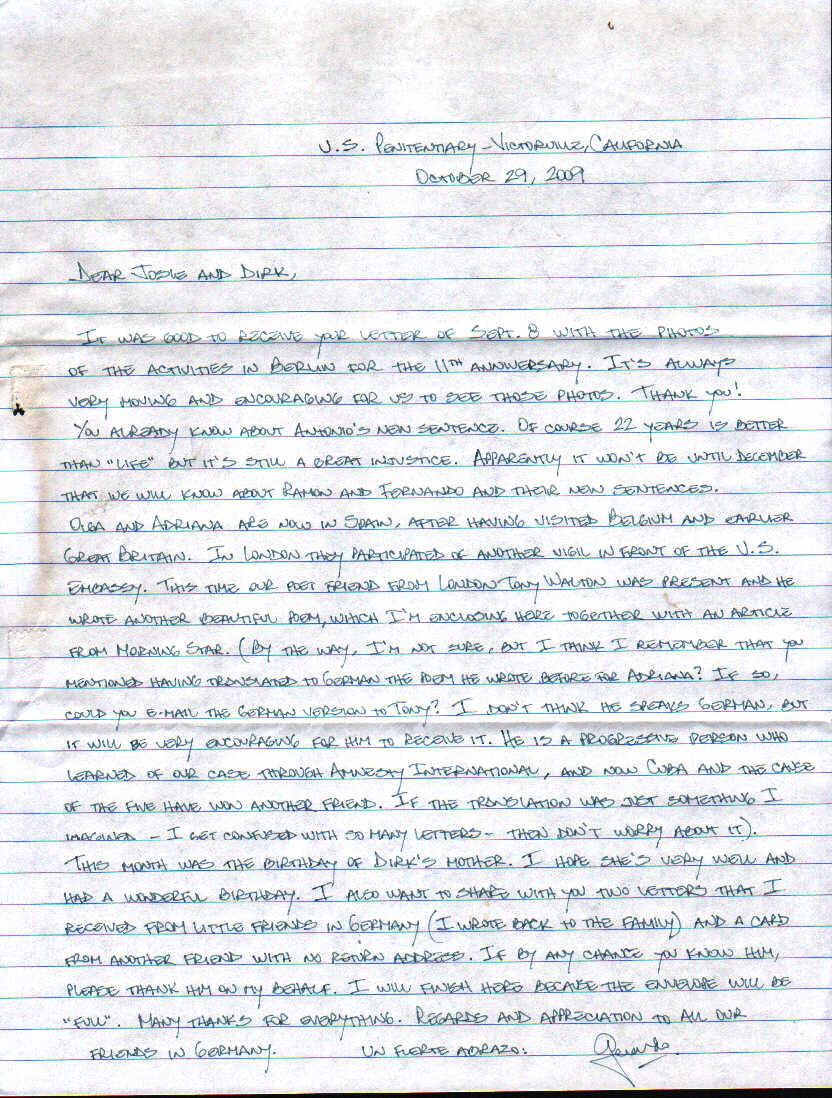 U.S. PENITENTIARY - VICTORVILLE, CALIFORNIA
OCTOBER 29, 2009
DEAR JOSIE AND DIRK,
IT WAS GOOD TO RECEIVE YOUR LETTER OF SEPT. 8 WITH THE PHOTOS
OF THE ACTIVITIES IN BERLIN FOR THE 11TH ANNIVERSARY. IT'S ALWAYS
VERY MOVING AND ENCOURAGING FOR US TO SEE THOSE PHOTOS. THANK YOU!
YOU ALREADY KNOW ABOUT ANTONIO'S NEW SENTENCE. OF COURSE 22 YEARS IS BETTER
THAN "LIFE" BUT IT'S STILL A GREAT INJUSTICE. APPARENTLY IT WON'T BE UNTIL DECEMBER
THAT WE WILL KNOW ABOUT RAMON AND FERNANDO AND THEIR NEW SENTENCES.
OLGA AND ADRIANA ARE NOW IN SPAIN, AFTER HAVING VISITED BELGIUM AND EARLIER
GREAT BRITAIN. IN LONDON THEY PARTICIPATED OF ANOTHER VIGIL IN FRONT OF THE U.S.
EMBASSY. THIS TIME OUR POET FRIEND FROM LONDON TONY WALTON WAS PRESENT AND HE
WROTE ANOTHER BEAUTIFUL POEM, WHICH I'M ENCLOSING HERE TOGETHER WITH AN ARTICLE
FROM MORNING STAR. (BY THE WAY, I'M NOT SURE, BUT I THINK I REMEMBER THAT YOU
MENTIONED HAVING TRANSLATED TO GERMAN THE POEM HE WROTE BEFORE FOR ADRIANA? IF SO,
COULD YOU E-MAIL THE GERMAN VERSION TO TONY? I DON'T THINK HE SPEAKS GERMAN, BUT
IT WILL BE VERY ENCOURAGING FOR HIM TO RECEIVE IT. HE IS A PROGRESSIVE PERSON WHO
LEARNED OF OUR CASE THROUGH AMNESTY INTERNATIONAL, AND NOW CUBA AND THE CAUSE
OF THE FIVE HAVE WON ANOTHER FRIEND. IF THE TRANSLATION WAS JUST SOMETHING I
IMAGINED - I GET CONFUSED WITH SO MANY LETTERS - THEN DON'T WORRY ABOUT IT).
THIS MONTH WAS THE BIRTHDAY OF DIRK'S MOTHER. I HOPE SHE'S VERY WELL AND
HAD A WONDERFUL BIRTHDAY. I ALSO WANT TO SHARE WITH YOU TWO LETTERS THAT I
RECEIVED FROM LITTLE FRIENDS IN GERMANY (I WROTE BACK TO THE FAMILY) AND A CARD
FROM ANOTHER FRIEND WITH NO RETURN ADDRESS. IF BY ANY CHANCE YOU KNOW HIM,
PLEASE THANK HIM ON MY BEHALF. I WILL FINISH HERE BECAUSE THE ENVELOPE WILL BE
"FULL". MANY THANKS FOR EVERYTHING. REGARDS AND APPRECIATION TO ALL OUR
FRIENDS IN GERMANY. UN FUERTE ABRAZO: Gerardo.